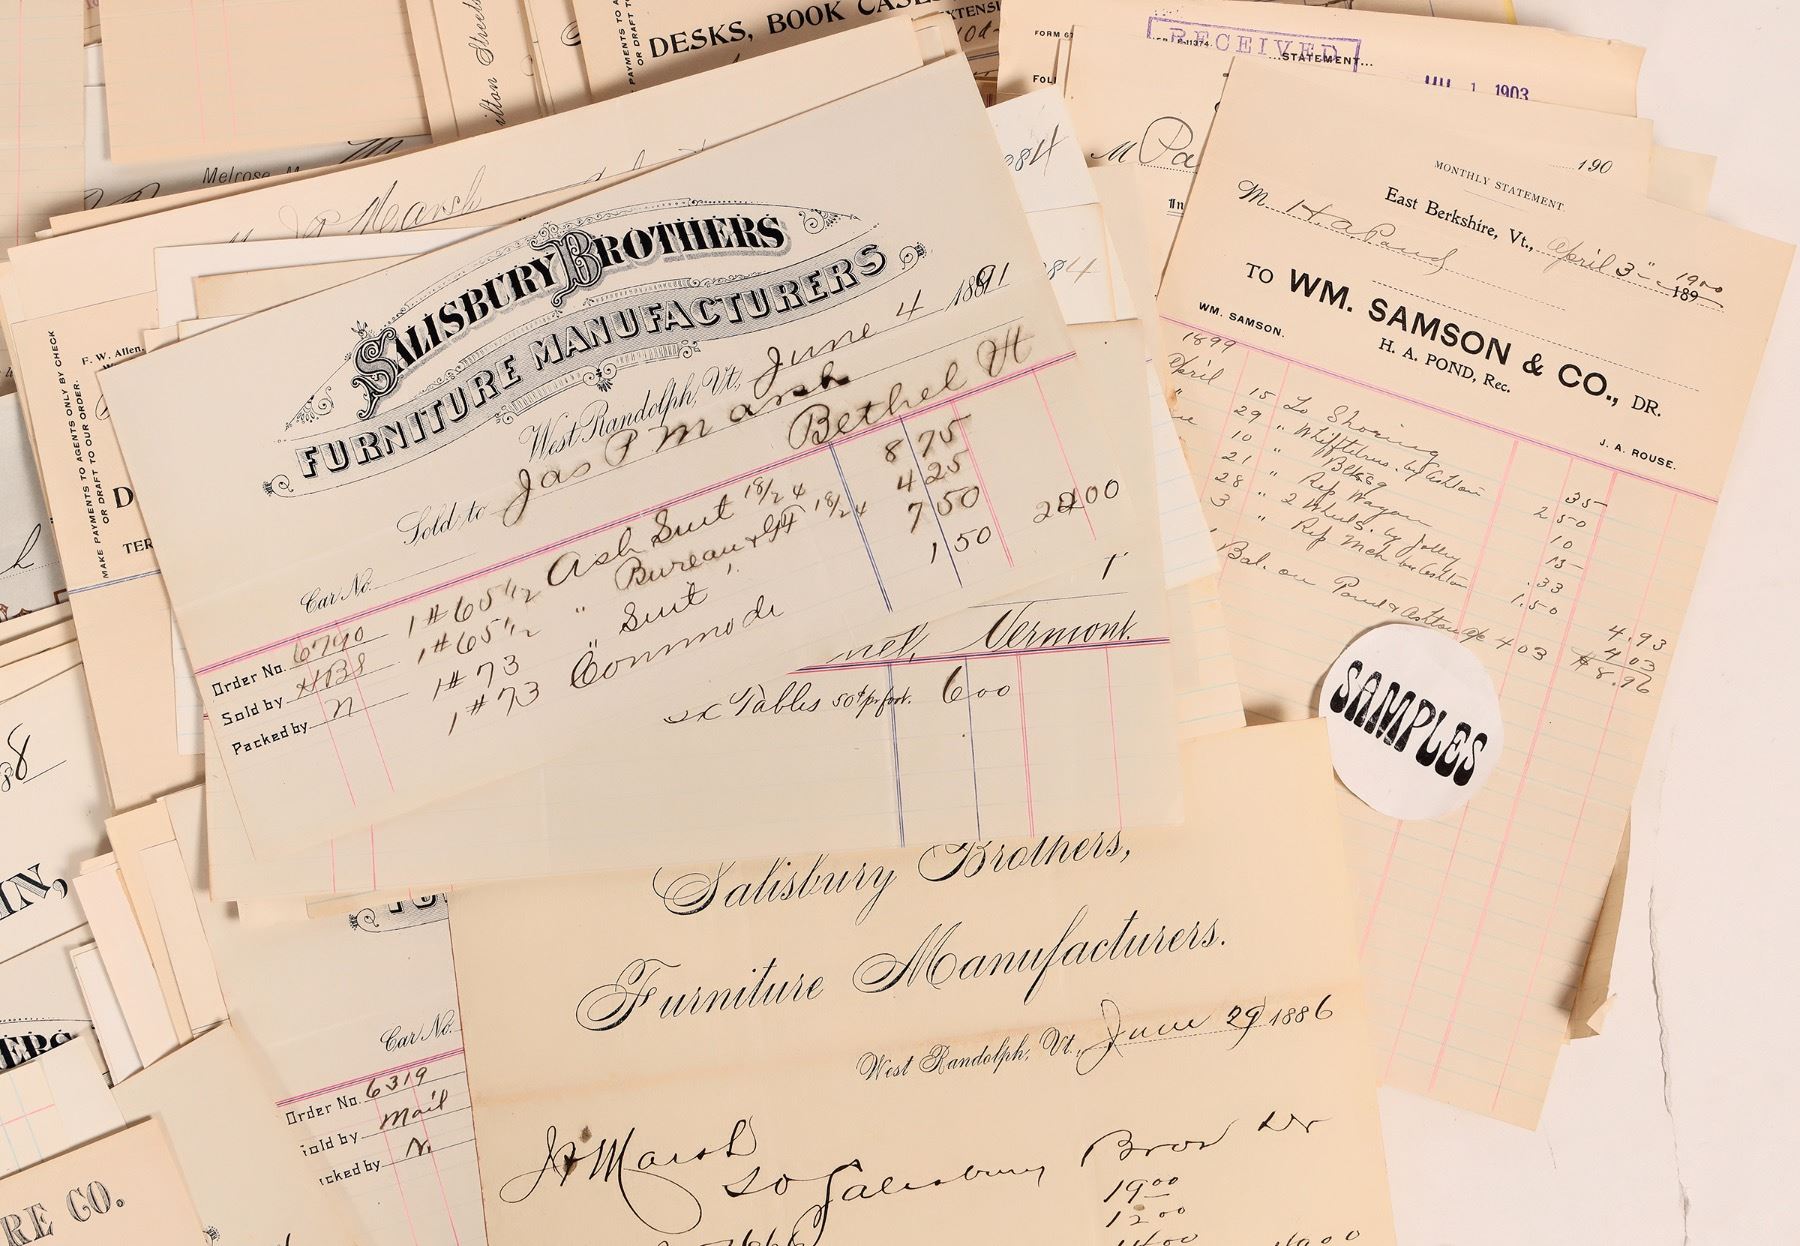 DESKS, BOOK CASES
EXTENSI
MAKE PAYMENTS TO AGENTS ONLY BY CHECK
OR DRAFT TO OUR ORDER.
F. W. Allen.
Melrose, M
J P Marsh
SALISBURY BROTHERS
FURNITURE MANUFACTURERS
West Randolph, Vt., June 4 1891
Sold to Jas P Marsh
Bethel Vt
Car No.
Order No. 6740 1 # 65 1/2 Ash Suit 18/24 8 75
Sold by HBS 1 # 65 1/2 " Bureau & Gl 18/24 4 25
Packed by N 1 # 73 " Suit " 7 50
1 # 73 Commode 1 50 22 00
net, Vermont.
ex Tables 50¢ pr foot. 6 00
FORM 67
RECEIVED
STATEMENT...
1 1903
FOLI
M Pa
84
84
190
MONTHLY STATEMENT.
East Berkshire, Vt., April 3" 1900
189
M H. A. Pond
TO WM. SAMSON & CO., DR.
WM. SAMSON. H. A. POND, Rec. J. A. ROUSE.
1899
April 15 To Shoeing 35
" 29 " Whiffletrees by Ashton 2 50
10 " Bltg 10
21 " Rep Wagon 15
28 " 2 Wheels by Jolley .33
3 " Rep Mch by Ashton 1.50
4.93
Bal. on Pond & Ashton a/c 4 03 4 03
$8.96
SAMPLES
Salisbury Brothers,
Furniture Manufacturers.
West Randolph, Vt., June 29 1886
J P Marsh
To Salisbury Bros Dr
19 00
12 00
Car No.
Order No. 6319
Sold by Mail
cked by N.
IN,
ERS
RE CO.